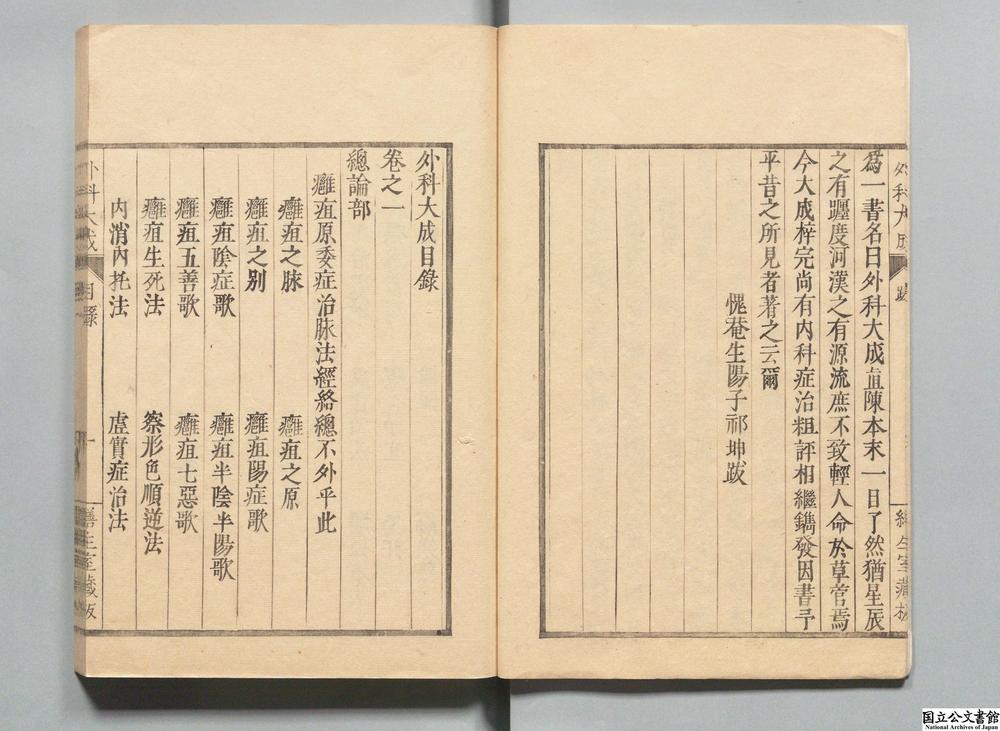 為一書名曰外科大成直陳本末一日了然猶星辰
之有躔度河漢之有源流庶不致輕人命於草菅焉
今大成梓完尚有内科症治粗評相繼鐫發因書予
平昔之所見者著之云爾
愧菴生陽子祁坤跋
外科大成目錄
卷之一
總論部
癰疽原委症治脉法經絡總不外乎此
癰疽之脉
癰疽之原
癰疽之别
癰疽陽症歌
癰疽陰症歌
癰疽半陰半陽歌
癰疽五善歌
癰疽七惡歌
癰疽生死法
察形色順逆法
内消内托法
虛實症治法
外科大成
目錄
一
善生室藏板
国立公文書館
National Archives of Japan